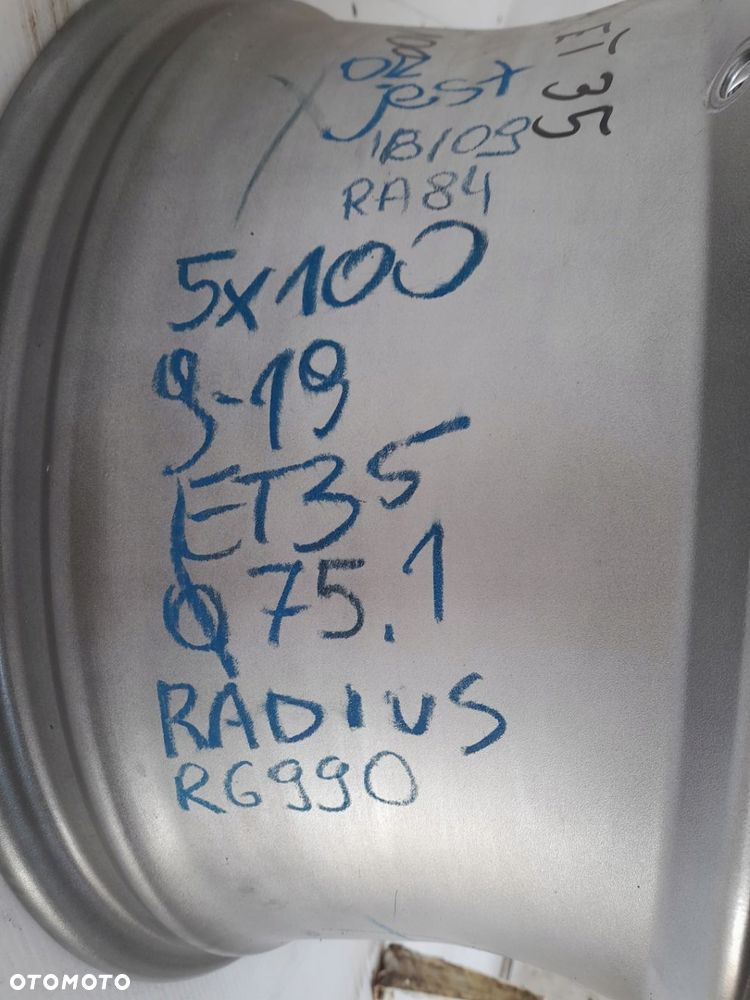 ET 35
OZ
jest
1B109
RA84
5x100
9-19
ET35
Ø 75.1
RADIUS
RG990
OTOMOTO